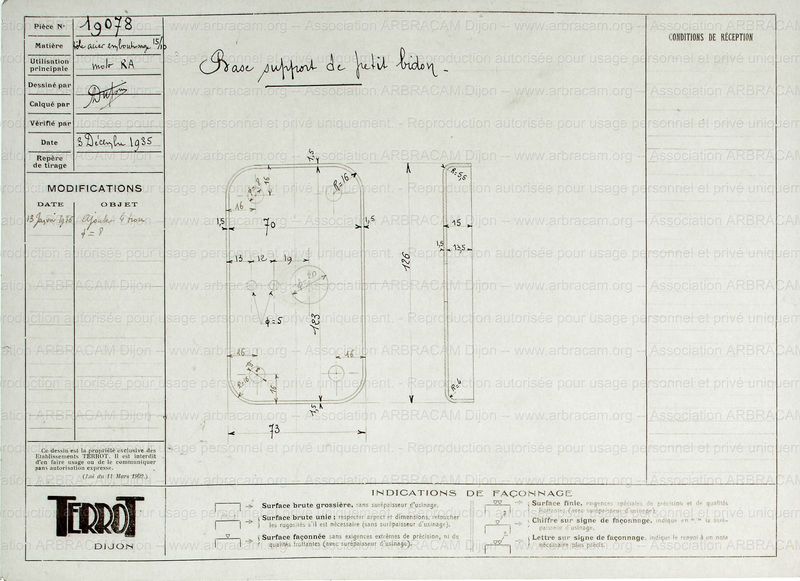 Pièce N° 19078
Matière tôle acier emboutissage 15/10
Utilisation principale moto RA
Dessiné par
Calqué par
Vérifié par
Date 3 Décembre 1935
Repère de tirage
MODIFICATIONS
DATE OBJET
13 1936 Ajouté 4 trous
φ = 8
Ce dessin est la propriété exclusive des
Etablissements TERROT. Il est interdit
d'en faire usage ou de le communiquer
sans autorisation expresse.
(Loi du 11 Mars 1902.)
TERROT
DIJON
Base support de petit bidon.
CONDITIONS DE RÉCEPTION
1,5
R=16
φ=8
16
16
1,5
70
1,5
13 12 19
φ=20
φ=5
123
16
16
16
1,5
73
126
R=5,5
15
1,5
13,5
R=6
INDICATIONS DE FAÇONNAGE
Surface brute grossière, sans surépaisseur d'usinage.
Surface brute unie; respecter aspect et dimensions, retoucher
les rugosités s'il est nécessaire (sans surépaisseur d'usinage).
Surface façonnée sans exigences extrêmes de précision, ni de
qualités frottantes (avec surépaisseur d'usinage).
Surface finie, exigences spéciales de précision et de qualités
frottantes (avec surépaisseur d'usinage).
Chiffre sur signe de façonnage, indique en la surépaisseur d'usinage.
Lettre sur signe de façonnage, indique le renvoi à une note
nécessaire plus précis.
www.arbracam.org -- Association ARBRACAM Dijon
Reproduction autorisée pour usage personnel et privé uniquement.